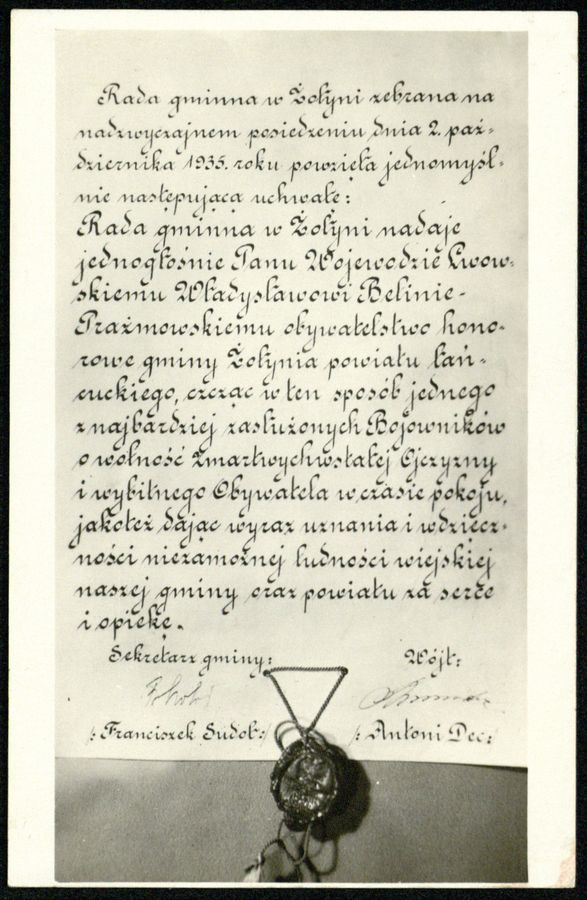 Rada gminna w Żołyni zebrana na
nadzwyczajnem posiedzeniu dnia 2. paź-
dziernika 1935. roku powzięła jednomyśl-
nie następującą uchwałę:
Rada gminna w Żołyni nadaje
jednogłośnie Panu Wojewodzie Lwow-
skiemu Władysławowi Belinie-
Prażmowskiemu obywatelstwo hono-
rowe gminy Żołynia powiatu łań-
cuckiego, czcząc w ten sposób jednego
z najbardziej zasłużonych Bojowników
o wolność Zmartwychwstałej Ojczyzny
i wybitnego Obywatela w czasie pokoju,
jakoteż dając wyraz uznania i wdzięcz-
ności niezamożnej ludności wiejskiej
naszej gminy oraz powiatu za serce
i opiekę.
Sekretarz gminy: Wójt:
/: Franciszek Sudoł :/ /: Antoni Dec :/